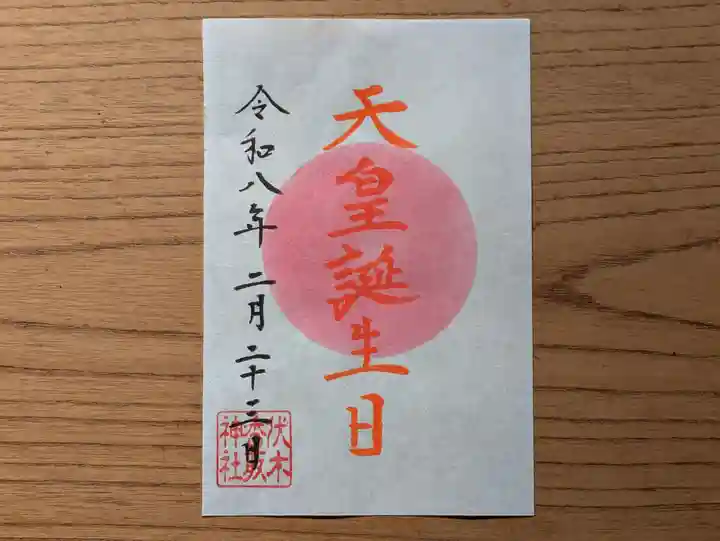 天皇誕生日
令和八年 二月二十三日
伏木
神社